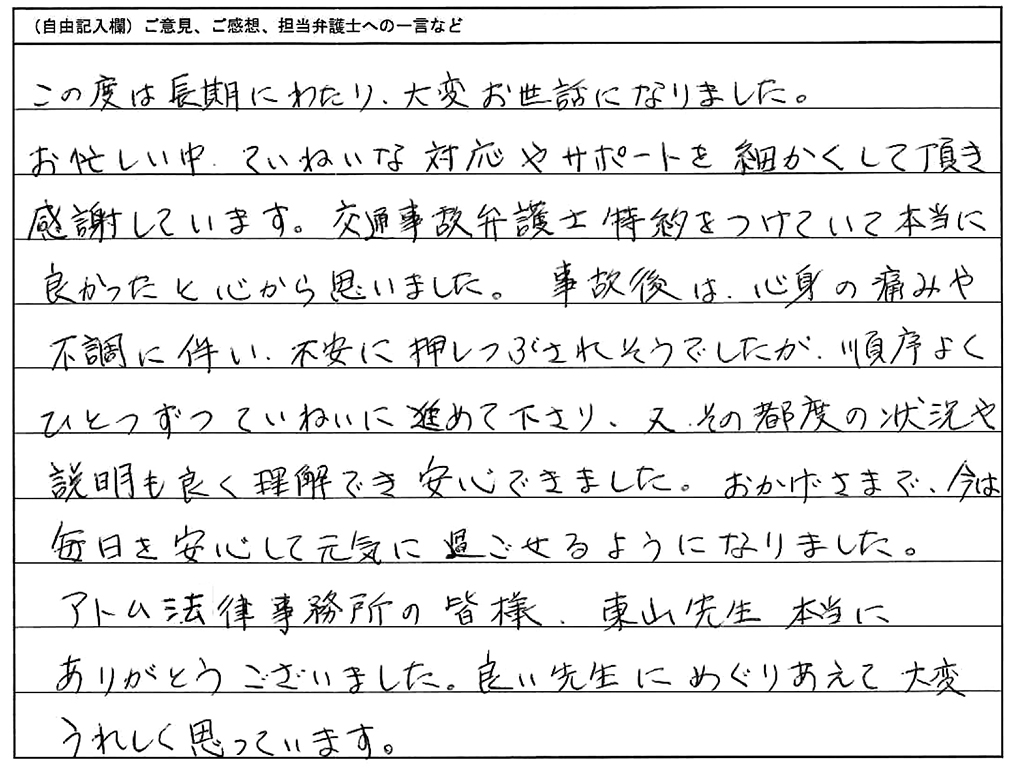 （自由記入欄）ご意見、ご感想、担当弁護士への一言など
この度は長期にわたり、大変お世話になりました。
お忙しい中、ていねいな対応やサポートを細かくして頂き
感謝しています。交通事故弁護士特約をつけていて本当に
良かったと心から思いました。事故後は、心身の痛みや
不調に伴い、不安に押しつぶされそうでしたが、順序よく
ひとつずつていねいに進めて下さり、又、その都度の状況や
説明も良く理解でき安心できました。おかげさまで、今は
毎日を安心して元気に過ごせるようになりました。
アトム法律事務所の皆様、東山先生本当に
ありがとうございました。良い先生にめぐりあえて大変
うれしく思っています。